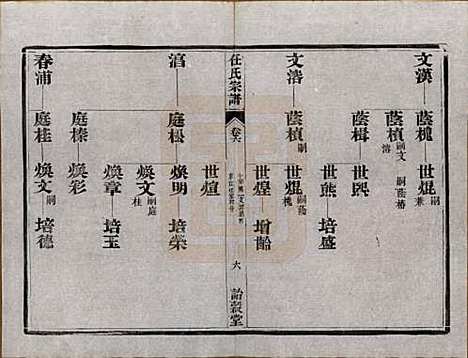 文漢 蔭槐 世焜嗣兼
蔭楨嗣文溶 嗣蔭椿
蔭楫 世熙
世熊 培盛
文溶 蔭楨嗣 世焜嗣蔭槐
世煌 增齡
世煊
任氏宗譜 卷六 六 詒穀堂
涫 庭松 煥明 培榮
煥文嗣庭桂
煥章 培玉
庭榛 煥彩
春浦 庭桂 煥文嗣 培德